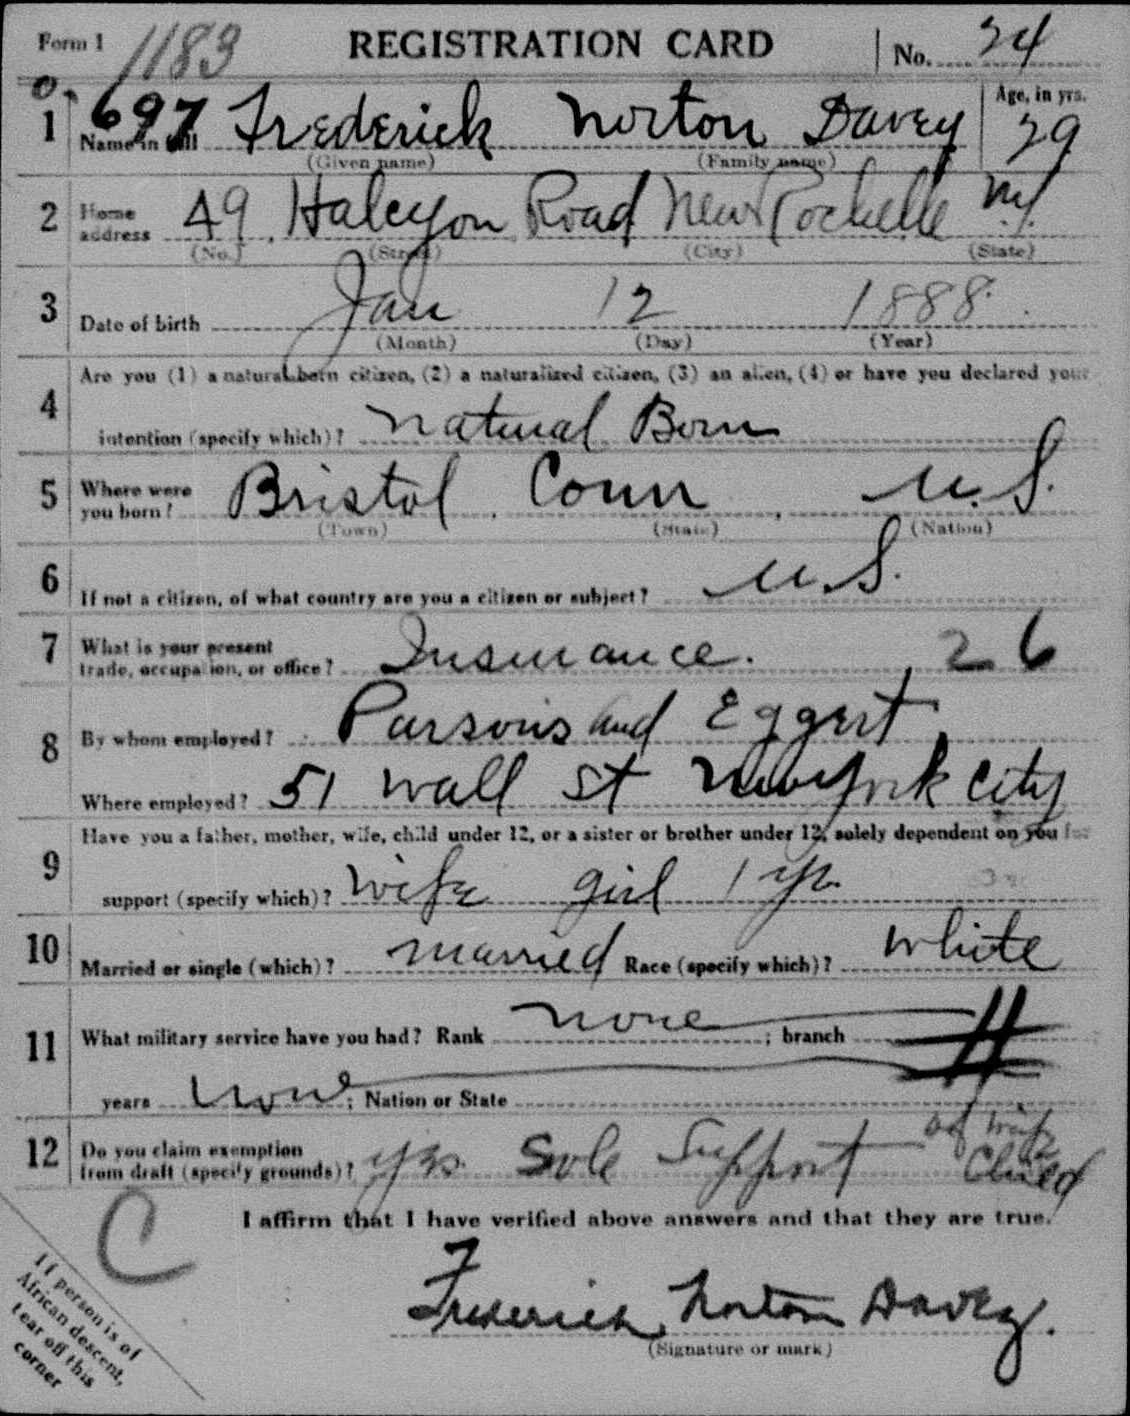 Form 1 1183 REGISTRATION CARD No. 24
1 697 Name in full Frederick Norton Davey Age, in yrs. 29
(Given name) (Family name)
2 Home address 49 Halcyon Road New Rochelle NY
(No.) (Street) (City) (State)
3 Date of birth Jan 12 1888
(Month) (Day) (Year)
4 Are you (1) a natural-born citizen, (2) a naturalized citizen, (3) an alien, (4) or have you declared your
intention (specify which)? Natural Born
5 Where were you born? Bristol, Conn, U.S.
(Town) (State) (Nation)
6 If not a citizen, of what country are you a citizen or subject? U.S.
7 What is your present trade, occupation, or office? Insurance. 26
8 By whom employed? Parsons and Eggert
Where employed? 51 Wall St New York City
9 Have you a father, mother, wife, child under 12, or a sister or brother under 12, solely dependent on you for
support (specify which)? Wife girl 1 yr.
10 Married or single (which)? married Race (specify which)? White
11 What military service have you had? Rank none ; branch
years none ; Nation or State
12 Do you claim exemption from draft (specify grounds)? yes Sole Support of wife Child
I affirm that I have verified above answers and that they are true.
C
Frederick Norton Davey.
(Signature or mark)
If person is of
African descent,
tear off this
corner